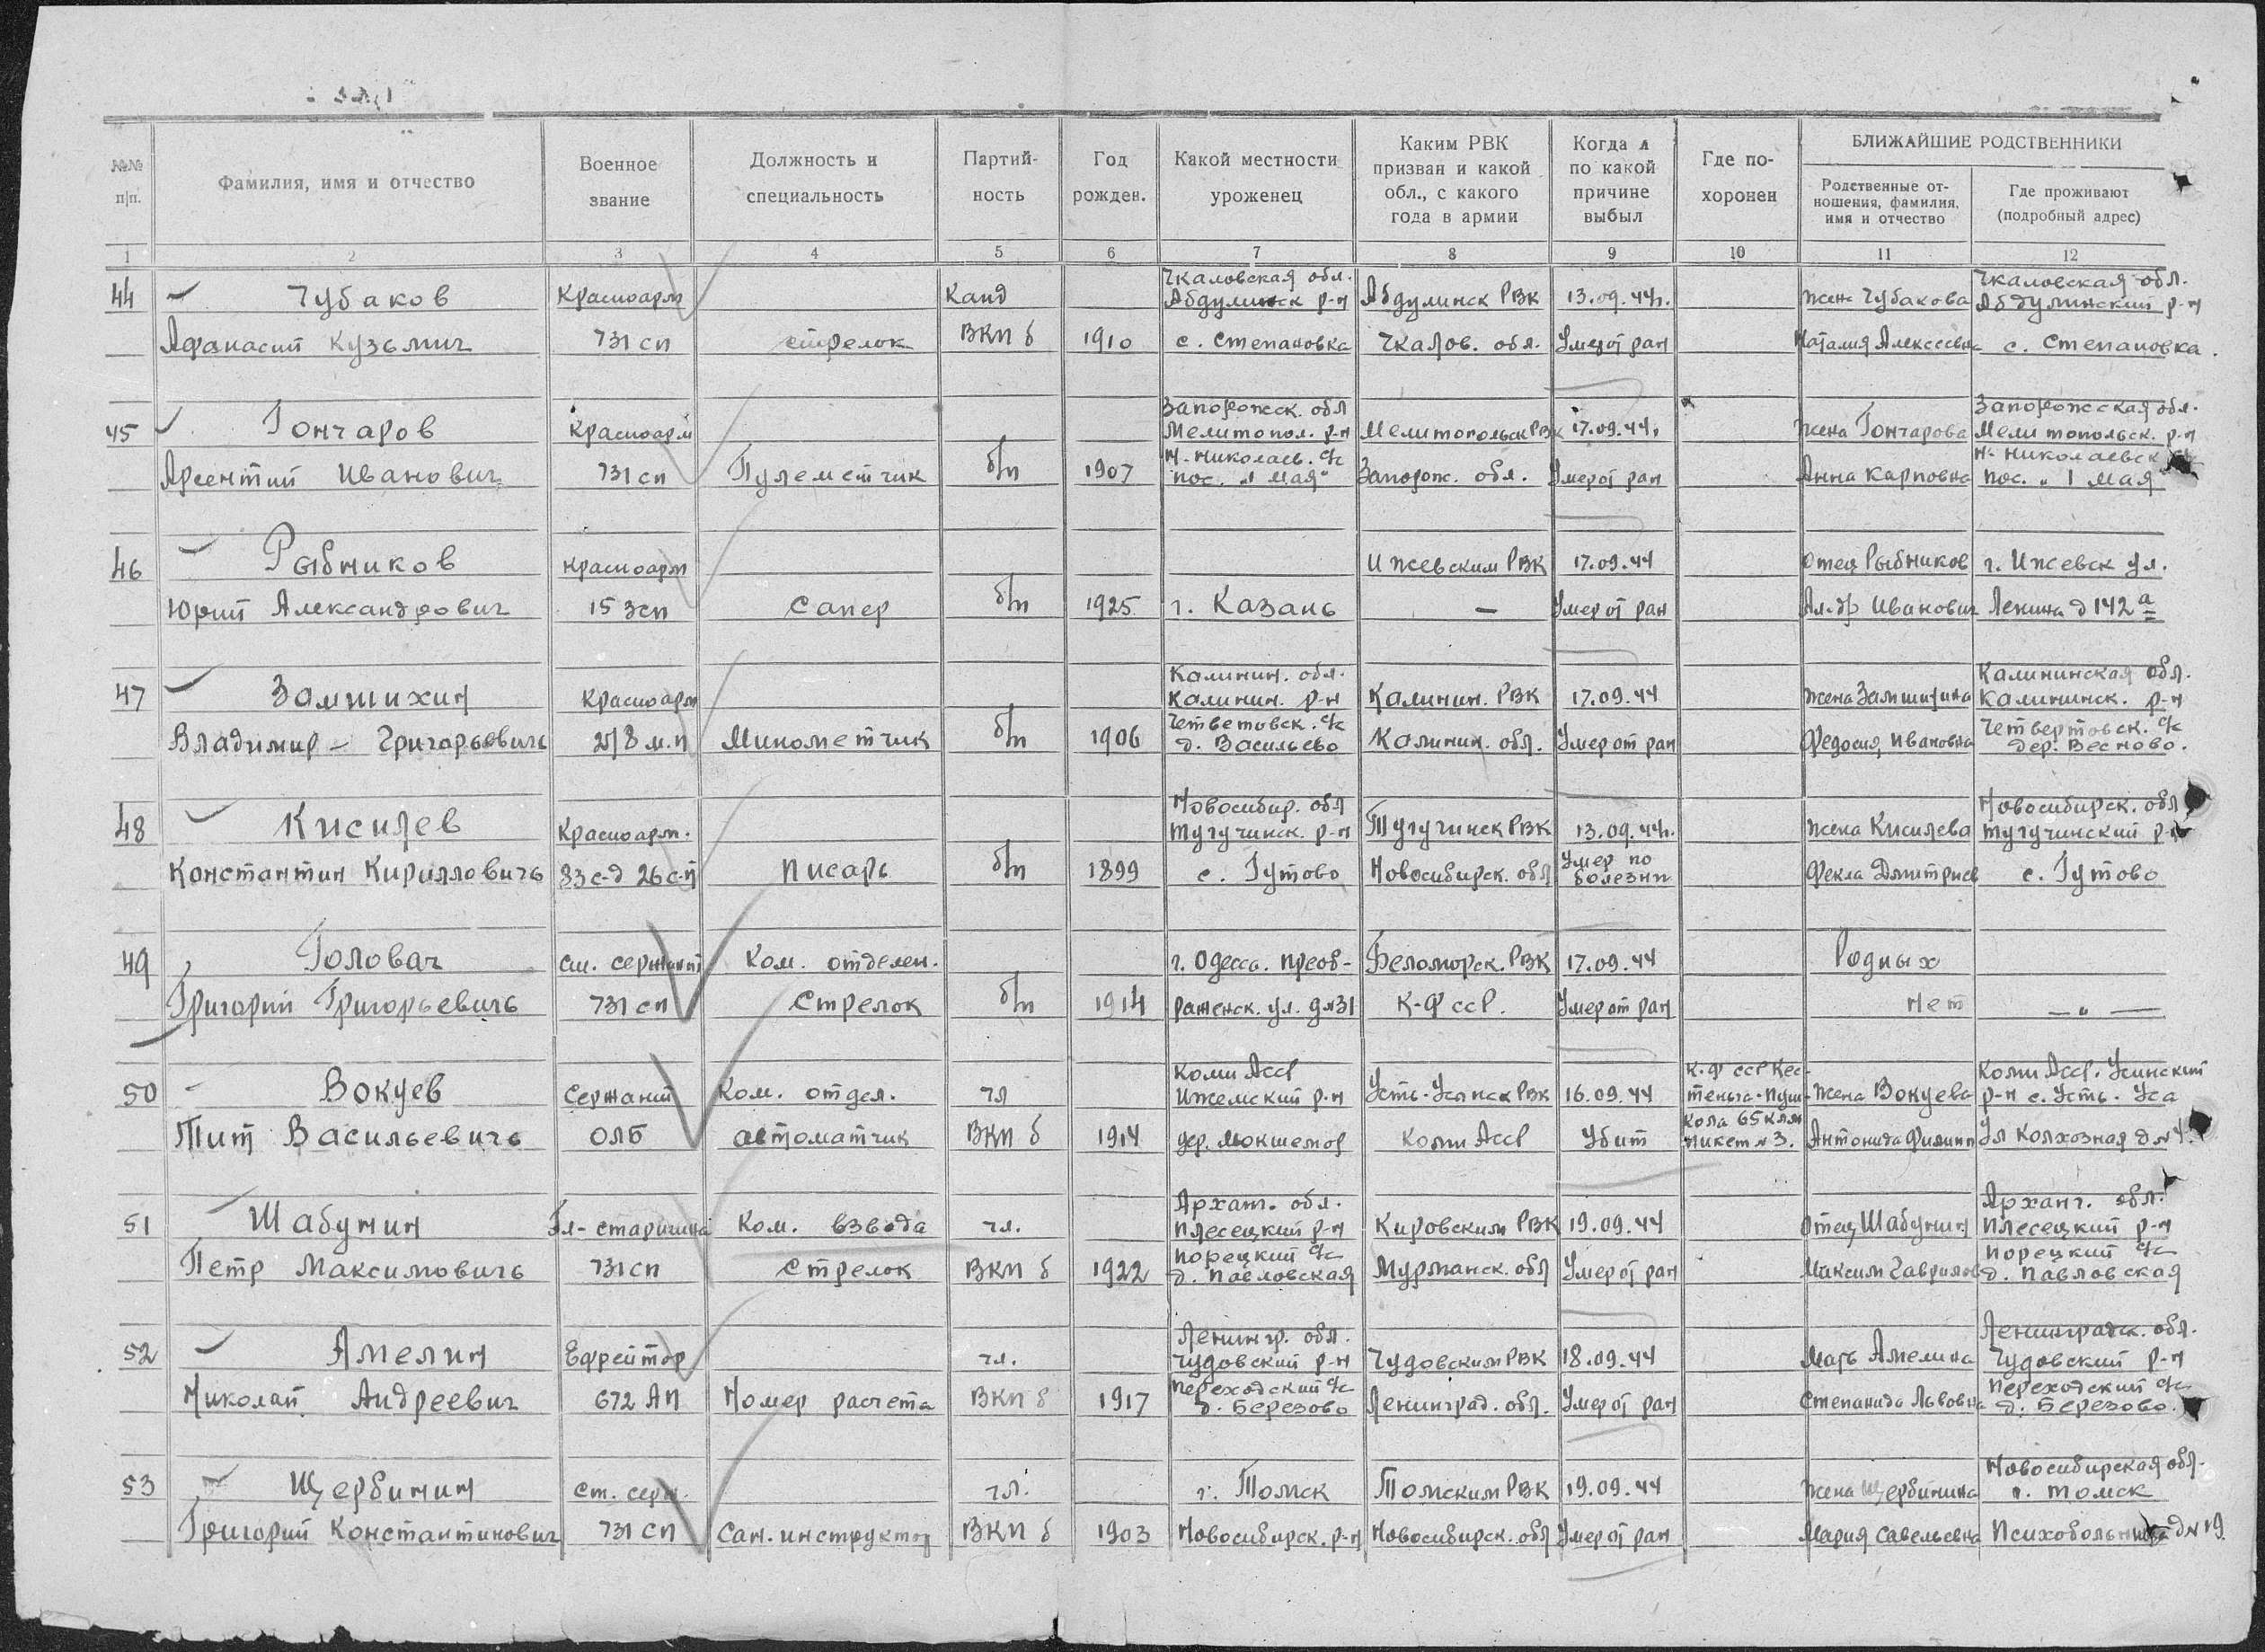 №№ п/п.
Фамилия, имя и отчество
Военное звание
Должность и специальность
Партий-ность
Год рожден.
Какой местности уроженец
Каким РВК призван и какой обл., с какого года в армии
Когда и по какой причине выбыл
Где по-хоронен
БЛИЖАЙШИЕ РОДСТВЕННИКИ
Родственные от-ношения, фамилия, имя и отчество
Где проживают (подробный адрес)
1 2 3 4 5 6 7 8 9 10 11 12
Чкаловская обл. Чкаловская обл.
44 Чубаков Красноарм Канд Абдулинск р-н Абдулинск РВК 13.09.44г. жена Чубакова Абдулинский р-н
Афанасий Кузьмич 731 сп стрелок ВКП б 1910 с. Степановка Чкалов. обл. Умер от ран Наталия Алексеевна с. Степановка.
Запорожск. обл Запорожская обл.
45 Гончаров Красноарм Мелитопол. р-н Мелитопольск РВК 17.09.44г жена Гончарова Мелитопольск. р-н
Н-Николаев. с/с Н-Николаевск
Арсентий Иванович 731 сп Пулеметчик б/п 1907 пос. "1 Мая" Запорож. обл. Умер от ран Анна Карповна пос. "1 Мая"
46 Рыбников Красноарм Ижевским РВК 17.09.44 отец Рыбников г. Ижевск ул.
Юрий Александрович 15 зсп Сапер б/п 1925 г. Казань — Умер от ран Ал-др Иванович Ленина д 142 а
Калинин. обл. Калининская обл.
47 Замшихин Красноарм Калинин. р-н Калинин. РВК 17.09.44 жена Замшихина Калининск. р-н
Четветовск. с/с Четвертовск. с/с
Владимир - Григорьевичь м.п Минометчик б/п 1906 д. Васильево Калинин. обл. Умер от ран Федосия Ивановна дер. Весново.
Новосибир. обл Новосибирск. обл
48 Кисилев Красноарм. Тугучинск. р-н Тугучинск РВК 13.09.44г. жена Кисилева Тугучинский р-н
Константин Кирилловичь 83 с-д 26 с-п писарь б/п 1899 с. Гутово Новосибирск. обл Умер по болезни Фекла Дмитриев с. Гутово
49 Головач см. сержант Ком. отделен. г. Одесса. Преоб- Беломорск. РВК 17.09.44 Родных
Григорий Григорьевичь 731 сп Стрелок б/п 1914 раженск. ул. д №31 К-Ф ССР. Умер от ран нет — " —
Коми АССР К-Ф ССР Кес- Коми АССР. Усинский
50 Вокуев Сержант Ком. отдел. чл Ижемский р-н Усть-Усинск РВК 16.09.44 теньга-Пуш- жена Вокуева р-н с. Усть-Уса
Тит Васильевичь ОЛБ автоматчик ВКП б 1914 дер. Мокшемор Коми АССР Убит кола 65 клм пикет №3. Антонида Филипп Ул Колхозная д №4.
Арханг. обл. Арханг. обл.
51 Шабунин Гл-старшина Ком. взвода чл. Плесецкий р-н Кировским РВК 19.09.44 отец Шабунин Плесецкий р-н
Порецкий с/с Порецкий с/с
Петр Максимовичь 731 сп Стрелок ВКП б 1922 д. Павловская Мурманск. обл Умер от ран Максим Гаврилов д. Павловская
Ленингр. обл. Ленинградск. обл.
52 Амелин Ефрейтор чл. Чудовский р-н Чудовским РВК 18.09.44 Мать Амелина Чудовский р-н
Переходский с/с Переходский с/с
Николай Андреевич 672 АП Номер расчета ВКП б 1917 д. Березово Ленинград. обл. Умер от ран Степанида Львовна д. Березово.
Новосибирская обл.
53 Щербинин Ст. серж. чл. г. Томск Томским РВК 19.09.44 жена Щербинина г. Томск
Григорий Константинович 731 сп Сан-инструктор ВКП б 1903 Новосибирск. р-н Новосибирск. обл Умер от ран Мария Савельевна Психобольница д №19